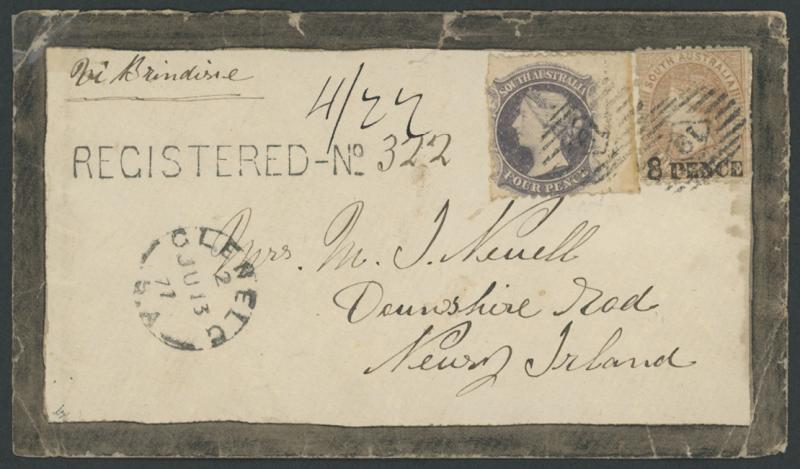 Vi Brindisie
4/77
REGISTERED-No 322
SOUTH AUSTRALIA
FOUR PENCE
SOUTH AUSTRALIA
8 PENCE
GLENELG
2
JU 13
77
S.A
Mrs. M. J. Newell
Downshire Rod
Newry Irland